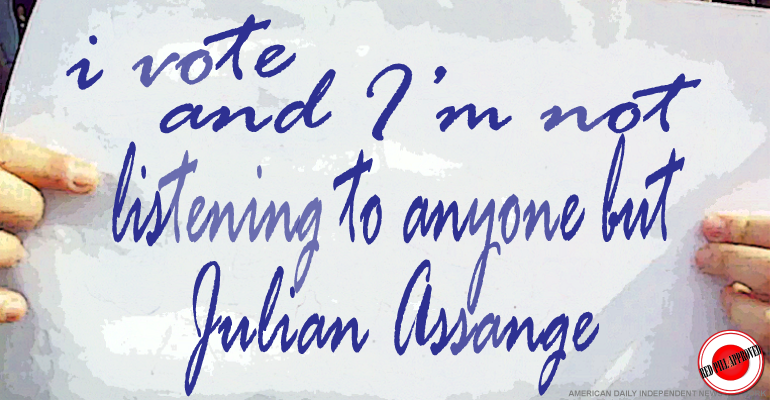 i vote
and I'm not
listening to anyone but
Julian Assange
RED PILL APPROVED
AMERICAN DAILY INDEPENDENT NEWS